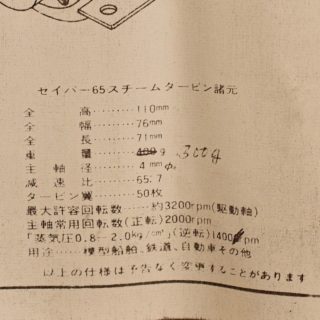 セイバー65スチームタービン諸元
全高………110mm
全幅………76mm
全長………71mm
重量………400g
主軸径………4mmφ
減速比………65:7
タービン翼………50枚
最大許容回転数…約3200rpm(駆動軸)
主軸常用回転数(正転)2000rpm
「蒸気圧0.8-2.0kg/cm²」(逆転)1400rpm
用途……模型船舶、鉄道、自動車その他
以上の仕様は予告なく変更することがあります